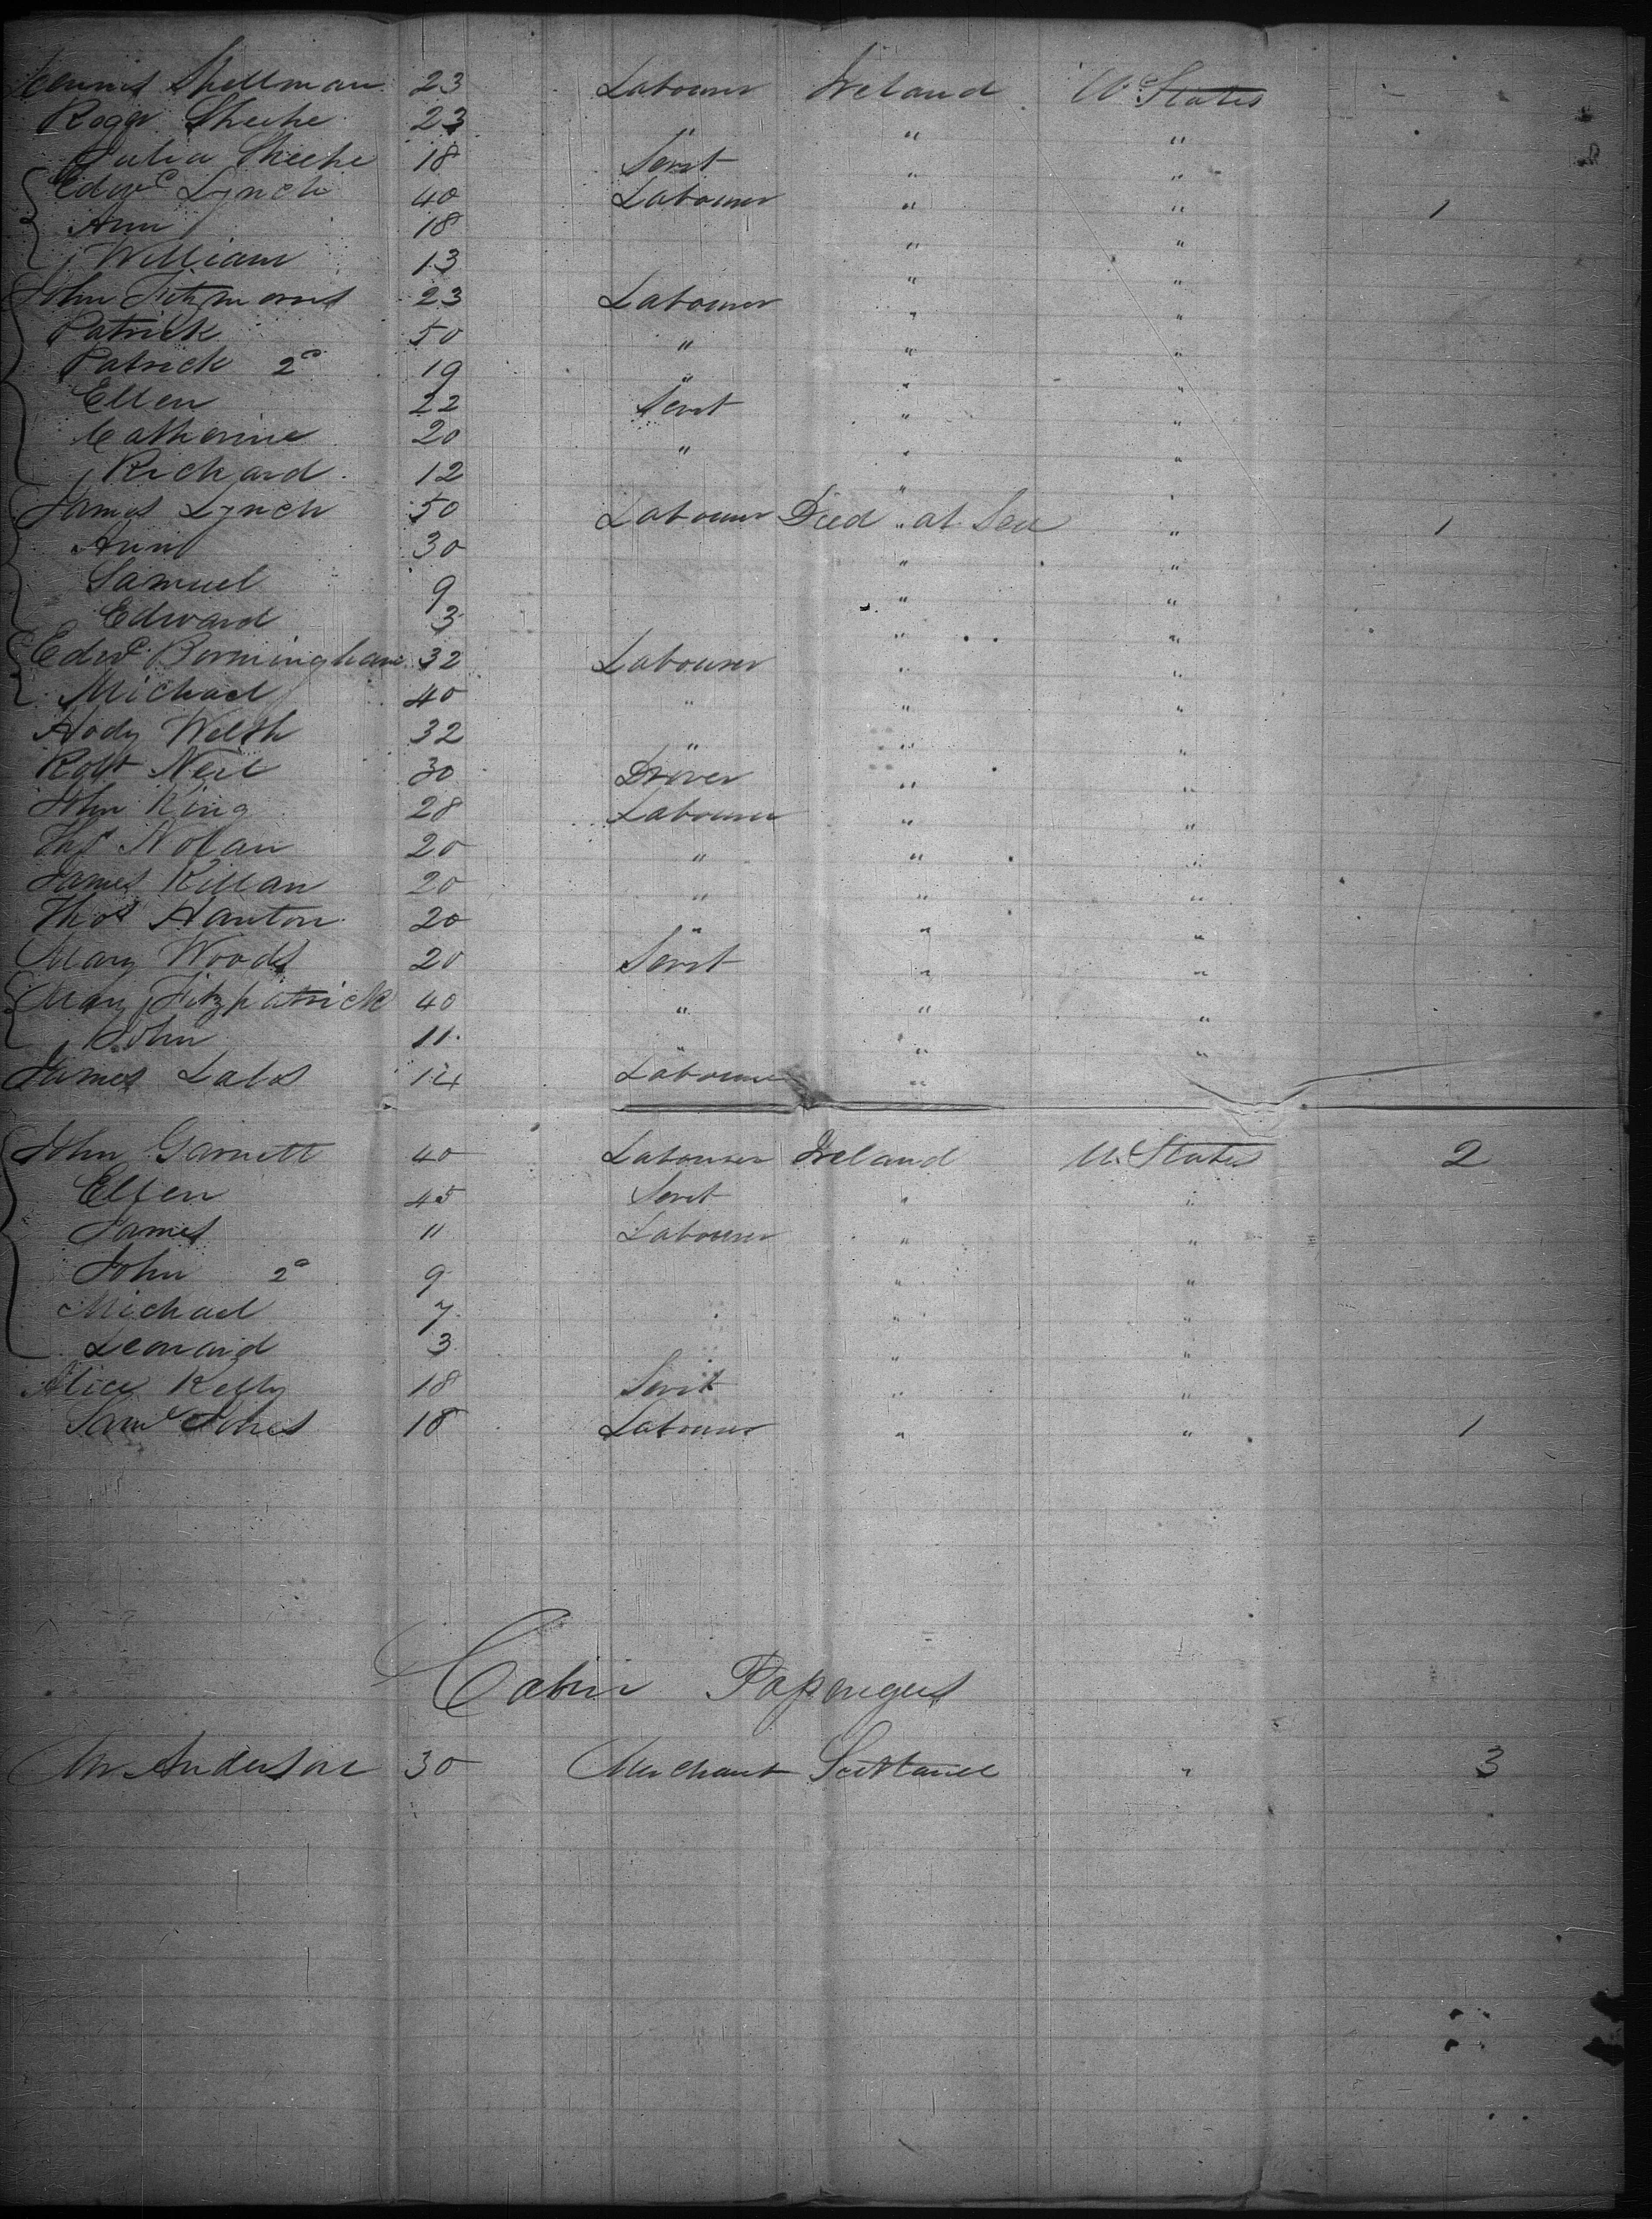 Dennis Shellman 23 Labourer Ireland U States
Roger Sheehe 23 " " "
Julia Sheehe 18 Servt " "
Edwd Lynch 40 Labourer " " 1
Ann 18 " "
William 13 " "
John Fitzmorris 23 Labourer " "
Patrick 50 " " "
Patrick 2d 19 " " "
Ellen 22 Servt " "
Catherine 20 " " "
Richard 12 " "
James Lynch 50 Labourer Died " at Sea " 1
Ann 30 " "
Samuel 9 " "
Edward 3 " "
Edwd Bermingham 32 Labourer " "
Michael 40 " " "
Welsh 32 " " "
Robt Neil 30 Drover " "
John King 28 Labourer " "
Ths Nolan 20 " " "
James Killan 20 " " "
Thos Hanton 20 " " "
Mary Woods 20 Servt " "
Mary Fitzpatrick 40 " " "
John 11 " " "
James 14 Labourer "
John Garnett 40 Labourer Ireland U. States 2
Ellen 45 Servt " "
James 11 Labourer " "
John 2d 9 " "
Michael 7 " "
Leonard 3 " "
Alice Kelly 18 Servt " "
Saml Jones 18 Labourer " " 1
Cabin Passengers
Mr Anderson 30 Merchant Scotland " 3